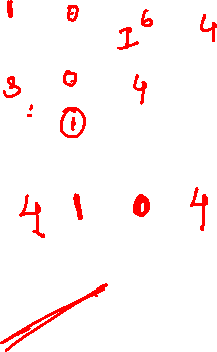 1 0 I 6 4
3 0 4
: 1
4 1 0 4